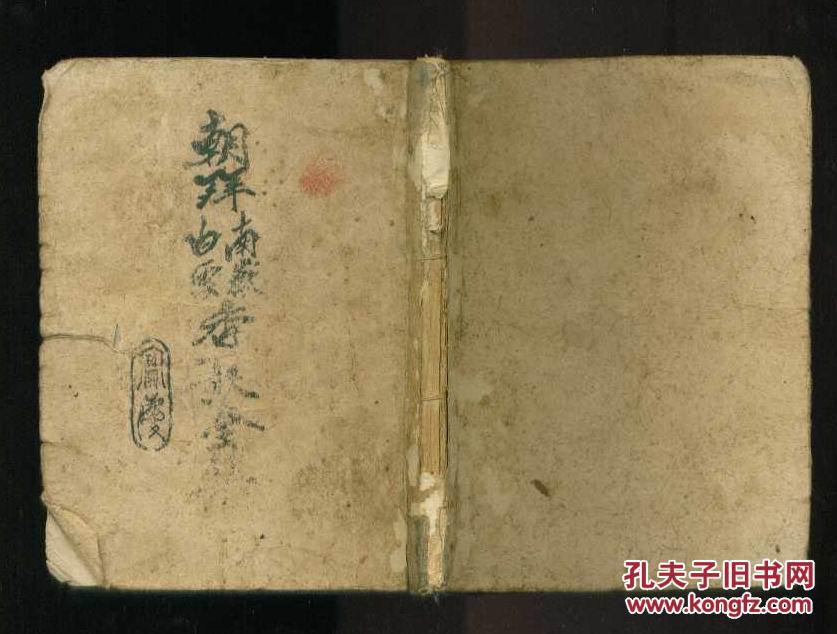 朝拜
南嶽
白雲
香
全
寶慶
孔夫子旧书网
www.kongfz.com